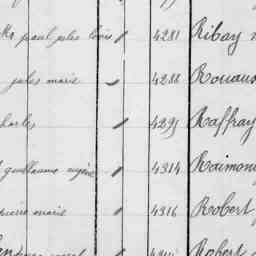 paul jules louis 4281 Ribay
jules marie 4288
charles 4295 Raffray
guillaume eugène 4314 Raimond
pierre marie 4316 Robert
Robert